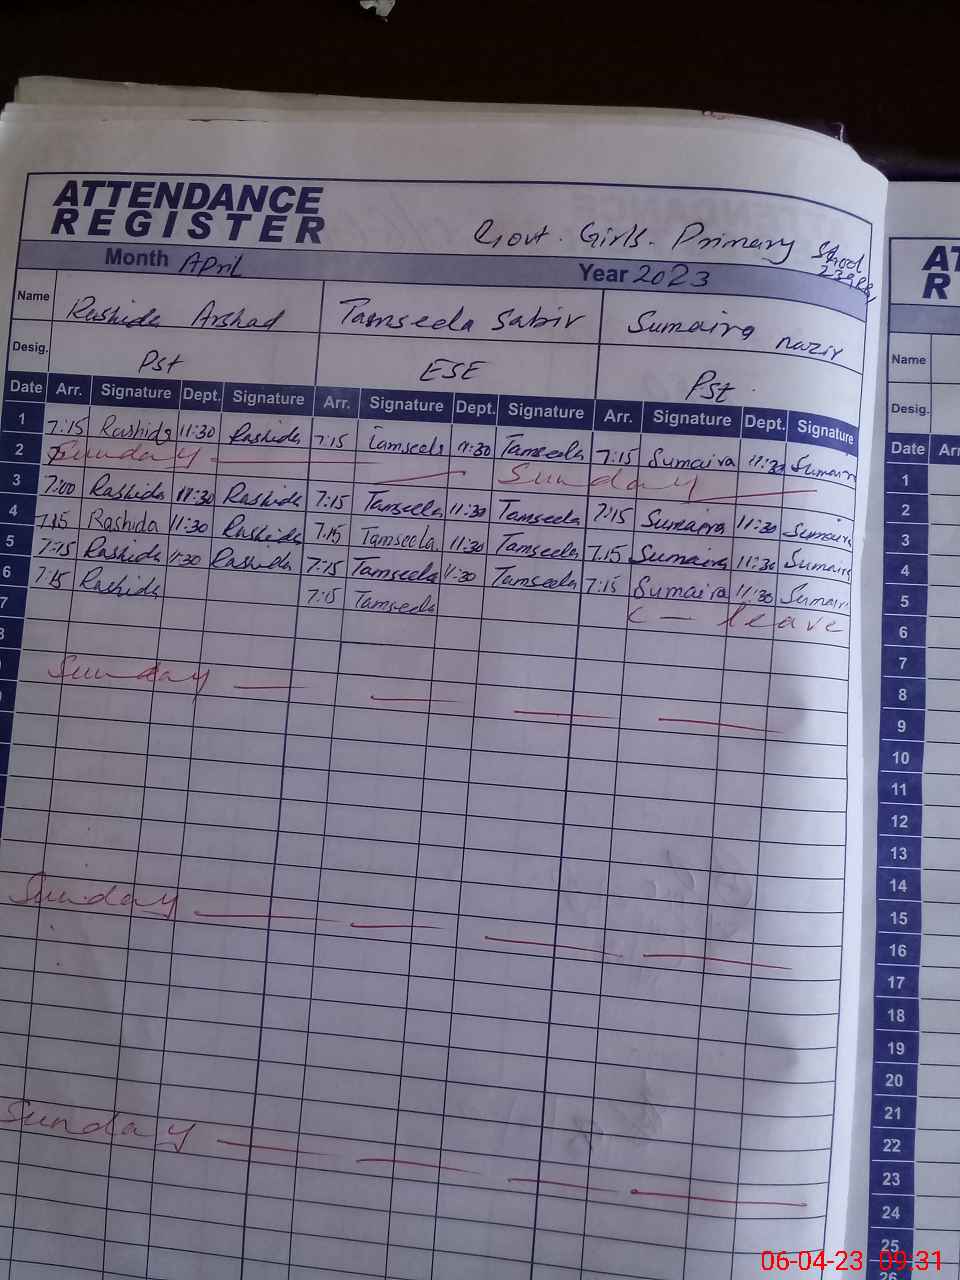 ATTENDANCE
REGISTER
Govt. Girls. Primary
Month April Year 2023
Name Rashida Arshad Tamseela Sabir Sumaira nazir
Desig. Pst ESE Pst
Date Arr. Signature Dept. Signature Arr. Signature Dept. Signature Arr. Signature Dept. Signature
1 7:15 Rashida 11:30 Rashida 7:15 Tamseela 11:30 Tamseela 7:15 Sumaira 11:30 Sumaira
2 Sunday Sunday
3 7:00 Rashida 11:30 Rashida 7:15 Tamseela 11:30 Tamseela 7:15 Sumaira 11:30 Sumaira
4 7:15 Rashida 11:30 Rashida 7:15 Tamseela 11:30 Tamseela 7:15 Sumaira 11:30 Sumaira
5 7:15 Rashida 11:30 Rashida 7:15 Tamseela 11:30 Tamseela 7:15 Sumaira 11:30 Sumair
6 7:15 Rashida 7:15 Tamseela C — leave
7
Sunday
Sunday
Sunday
AT
R
Name
Desig.
Date Arr
1
2
3
4
5
6
7
8
9
10
11
12
13
14
15
16
17
18
19
20
21
22
23
24
25
26
06-04-23 09:31